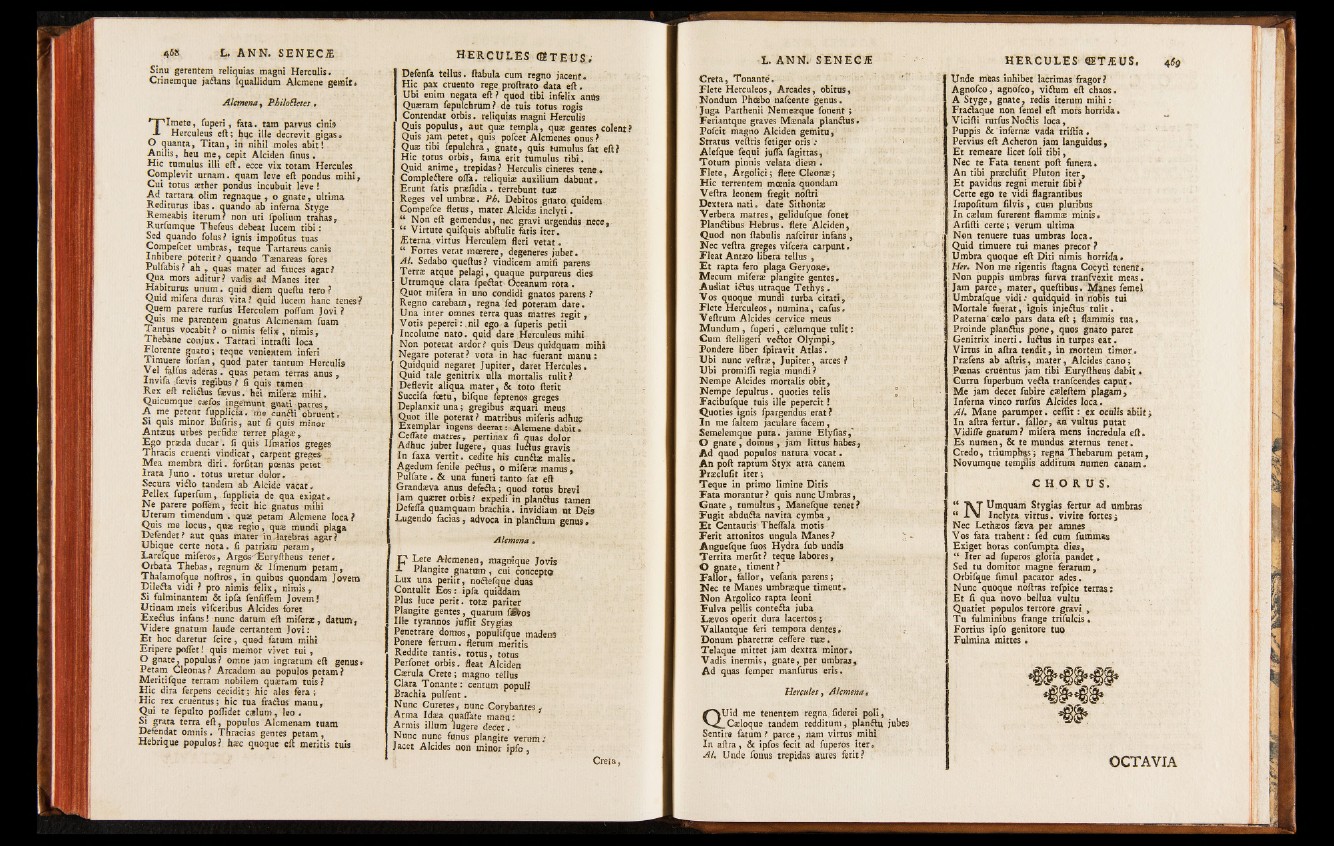 468 L. ANN. SENECÆ
Sinu gerentem reliquias magni Herculis.
Crinemque jactans squallidum Alcmene gemit.
Alcmena, Philoctetes.
TImete, superi, fata. tam parvum cinis
Herculeus est; huc ille decrevit gigas.
O quanta, Titan, in nihil moles abit!
Anilis, heu me, cepit Alciden sinus.
Hic tumulus illi est. ecce vix totam Hercules
Complevit urnam. quam leve est pondus mihi,
Cui totus æther pondus incubuit leve!
Ad tartara olim regnaque, o gnate, ultima
Rediturus ibas. quando ab inferna Styge
Remeabis iterum? non uti spolium trahas,
Rursumque Theseus debeat lucem tibi:
Sed quando solus? ignis impositus tuas
Compescet umbras, teque Tartareus canis
Inhibere poterit? quando Tænareas fores
Pulsabis? ah, quas mater ad fauces agar?
Qua mors aditur? vadis ad Manes iter
Habiturus unum. quid diem questu tero?
Quid misera duras vita? quid lucem hanc tenes?
Quem parere rursus Herculem possum Jovi?
Quis me parentem gnatus Alcmenam suam
Tantus vocabit? o nimis felix, nimis,
Thebane conjux. Tartari intrasti loca
Florente gnato; teque venientem inferi
Timuere forsan, quod pater tantum Herculis
Vel falsus aderas. quas petam terras anus,
Invisa sævis regibus? si quis tamen
Rex est relictus sævus. hei miseræ mihi.
Quicumque cæsos ingemunt gnati patres,
A me petent supplicia. me cuncti obruent.
Si quis minor Busiris, aut si quis minor
Antæus urbes perfidæ terret plagæ,
Ego præda ducar. si quis Ismarios greges
Thracis cruenti vindicat, carpent greges
Mea membra diri. forsitan pœnas petet
Irata Juno. totus uretur dolor.
Secura victo tandem ab Alcide vacat.
Pellex superfum, supplicia de qua exigat.
Ne parere possem, fecit hic gnatus mihi
Uterum timendum. quæ petam Alcmene loca?
Quis me locus, quæ regio, quæ mundi plaga
Defendet? aut quas mater in latebras agar?
Ubique certe nota. si patriam petam,
Laresque miseros, Argos Eurystheus tenet.
Orbata Thebas, regnum & Ismenum petam,
Thalamosque nostros, in quibus quondam Jovem
Dilecta vidi? pro nimis felix, nimis,
Si fulminantem & ipsa sensissem Jovem!
Utinam meis visceribus Alcides foret
Exectus infans! nunc datum est miseræ, datum,
Videre gnatum laude certantem Jovi:
Et hoc daretur scire, quod fatum mihi
Eripere posset! quis memor vivet tui,
O gnate, populus? omne jam ingratum est genus.
Petam Cleonas? Arcadum au populos petam?
Meritisque terram nobilem quæram tuis?
Hic dira serpens cecidit; hic ales fera;
Hic rex cruentus; hic tua fractus manu,
Qui te sepulto possidet cælum, leo.
Si grata terra est, populus Alcmenam tuam
Defendat omnis. Thracias gentes petam,
Hebrique populos? hæc quoque est meritis tuis
HERCULES ŒTEUS.
Defensa tellus. stabula cum regno jacent.
Hic pax cruento rege prostrato data est.
Ubi enim negata est? quod tibi infelix anus
Quæram sepulchrum? de tuis totus rogis
Contendat orbis. reliquias magni Herculis
Quis populus, aut quæ templa, quæ gentes colent?
Quis jam petet, quis poscet Alcmenes onus?
Quæ tibi sepulchra, gnate, quis tumulus sat est?
Hic totus orbis, fama erit tumulus tibi.
Quid anime, trepidas? Herculis cineres tene.
Complectere ossa. reliquiæ auxilium dabunt.
Erunt satis præsidia. terrebunt tuæ
Reges vel umbræ. Ph. Debitos gnato quidem
Compesce fletus, mater Alcidæ inclyti.
“ Non est gemendus, nec gravi urgendus nece,
“ Virtute quisquis abstulit fatis iter.
Æterna virtus Herculem fleri vetat.
“ Fortes vetat mœrere, degeneres jubet.
Al. Sedabo questus? vindicem amisi parens
Terræ atque pelagi, quaque purpureus dies
Utrumque clara spectat Oceanum rota.
Quot misera in uno condidi gnatos parens?
Regno carebam, regna sed poteram dare.
Una inter omnes terra quas matres regit,
Votis peperci: nil ego a superis petii
Incolume nato. quid dare Herculeus mihi
Non poterat ardor? quis Deus quidquam mihi
Negare poterat? vota in hac fuerant manu:
Quidquid negaret Jupiter, daret Hercules.
Quid tale genitrix ulla mortalis tulit?
Deflevit aliqua mater, & toto stetit
Succisa fœtu, bisque septenos greges
Deplanxit una; gregibus æquari meus
Quot ille poterat? matribus miseris adhuc
Exemplar ingens deerat: Alcmene dabit.
Cessate matres, pertinax si quas dolor
Adhuc jubet lugere, quas luctus gravis
In saxa vertit. cedite his cunctæ malis.
Agedum senile pectus, o miseræ manus,
Pulsate. & una funeri tanto sat est
Grandæva anus defecta; quod totus brevi
Jam quæret orbis? expedi in planctus tamen
Defessa quamquam brachia. invidiam ut Deis
Lugendo facias, advoca in planctum genus.
Alcmena.
FLete Alcmenen, magnique Jovis
Plangite gnatum, cui concepto
Lux una periit, noctesque duas
Contulit Eos: ipsa quiddam
Plus luce perit. totæ pariter
Plangite gentes, quarum sævos
Ille tyrannos jussit Stygias
Penetrare domos, populisque madens
Ponere ferrum. fletum meritis
Reddite tantis. totus, totus
Personet orbis. fleat Alciden
Cærula Crete; magno tellus
Clara Tonante: centum populi
Brachia pulsent.
Nunc Curetes, nunc Corybantes,
Arma Idæa quassate manu:
Armis illum lugere decet.
Nunc nunc funus plangite verum:
Jacet Alcides non minor ipso,
Creta,
L. ANN. SENECÆ
Creta, Tonante.
Flete Herculeos, Arcades, obitus,
Nondum Phœbo nascente genus.
Juga Parthenii Nemeæque sonent;
Feriantque graves Mænala planctus.
Poscit magno Alciden gemitu,
Stratus vestris setiger oris:
Alesque sequi jussa sagittas,
Totum pinnis velata diem.
Flete, Argolici; flete Cleonæ;
Hic terrentem mœnia quondam
Vestra leonem fregit nostri
Dextera nati. date Sithoniæ
Verbera matres, gelidusque sonet
Planctibus Hebrus. flete Alciden,
Quod non stabulis nascitur infans,
Nec vestra greges viscera carpunt.
Fleat Antæo libera tellus,
Et rapta fero plaga Geryonæ.
Mecum miseræ plangite gentes.
Audiat ictus utraque Tethys.
Vos quoque mundi turba citati,
Flete Herculeos, numina, casus.
Vestrum Alcides cervice meus
Mundum, superi, cælumque tulit:
Cum stelligeri vector Olympi,
Pondere liber spiravit Atlas.
Ubi nunc vestræ, Jupiter, arces?
Ubi promissi regia mundi?
Nempe Alcides mortalis obit,
Nempe sepultus. quoties telis
Facibusque tuis ille pepercit!
Quoties ignis spargendus erat?
In me saltem jaculare facem,
Semelemque puta. jamne Elysias,
O gnate, domus, jam littus habes,
Ad quod populos natura vocat.
An post raptum Styx atra canem
Præclusit iter;
Teque in primo limine Ditis
Fata morantur? quis nunc Umbras,
Gnate, tumultus, Manesque tenet?
Fugit abducta navita cymba,
Et Centauris Thessala motis
Ferit attonitos ungula Manes?
Anguesque suos Hydra sub undis
Territa mersit? teque labores,
O gnate, timent?
Fallor, fallor, vesana parens;
Nec te Manes umbræque timent.
Non Argolico rapta leoni
Fulva pellis contecta juba
Lævos operit dura lacertos;
Vallantque feri tempora dentes.
Donum pharetræ cessere tuæ.
Telaque mittet jam dextra minor.
Vadis inermis, gnate, per umbras,
Ad quas semper mansurus eris.
Hercules, Alcmena.
QUid me tenentem regna siderei poli,
Cæloque tandem redditum, planctu jubes
Sentire fatum? parce, nam virtus mihi
In astra, & ipsos fecit ad superos iter.
Al. Unde sonus trepidas aures ferit?
HERCULES ŒTÆUS. 469
Unde meas inhibet lacrimas fragor?
Agnosco, agnosco, victum est chaos.
A Styge, gnate, redis iterum mihi:
Fractaque non semel est mors horrida.
Vicisti rursus Noctis loca,
Puppis & infernæ vada tristia.
Pervius est Acheron jam languidus,
Et remeare licet soli tibi,
Nec te Fata tenent post funera.
An tibi præclusit Pluton iter,
Et pavidus regni metuit sibi?
Certe ego te vidi flagrantibus
Impositum silvis, cum pluribus
In cælum fureret flammæ minis.
Arsisti certe; verum ultima
Non tenuere tuas umbras loca.
Quid timuere tui manes precor?
Umbra quoque est Diti nimis horrida.
Her. Non me rigentis stagna Cocyti tenent.
Non puppis umbras furva transvexit meas.
Jam parce, mater, questibus. Manes semel
Umbrasque vidi: quidquid in nobis tui
Mortale fuerat, ignis injectus tulit.
Paterna cælo pars data est; flammis tua.
Proinde planctus pone, quos gnato paret
Genitrix inerti. luctus in turpes eat.
Virtus in astra tendit, in mortem timor.
Præsens ab astris, mater, Alcides cano;
Pœnas cruentus jam tibi Eurystheus dabit.
Curru superbum vecta transcendes caput.
Me jam decet subire cælestem plagam,
Inferna vinco rursus Alcides loca.
Al. Mane parumper. cessit: ex oculis abiit;
In astra fertur. fallor, an vultus putat
Vidisse gnatum? misera mens incredula est.
Es numen, & te mundus æternus tenet.
Credo, triumphas; regna Thebarum petam,
Novumque templis additum numen canam.
CHORUS.
“ NUmquam Stygias fertur ad umbras
“ Inclyta virtus. vivite fortes;
Nec Lethæos sæva per amnes
Vos fata trahent: sed cum summas
Exiget horas consumpta dies,
“ Iter ad superos gloria pandet.
Sed tu domitor magne ferarum,
Orbisque simul pacator ades.
Nunc quoque nostras respice terras:
Et si qua novo bellua vultu
Quatiet populos terrore gravi,
Tu fulminibus frange trisulcis.
Fortius ipso genitore tuo
Fulmina mittes.
OCTAVIA